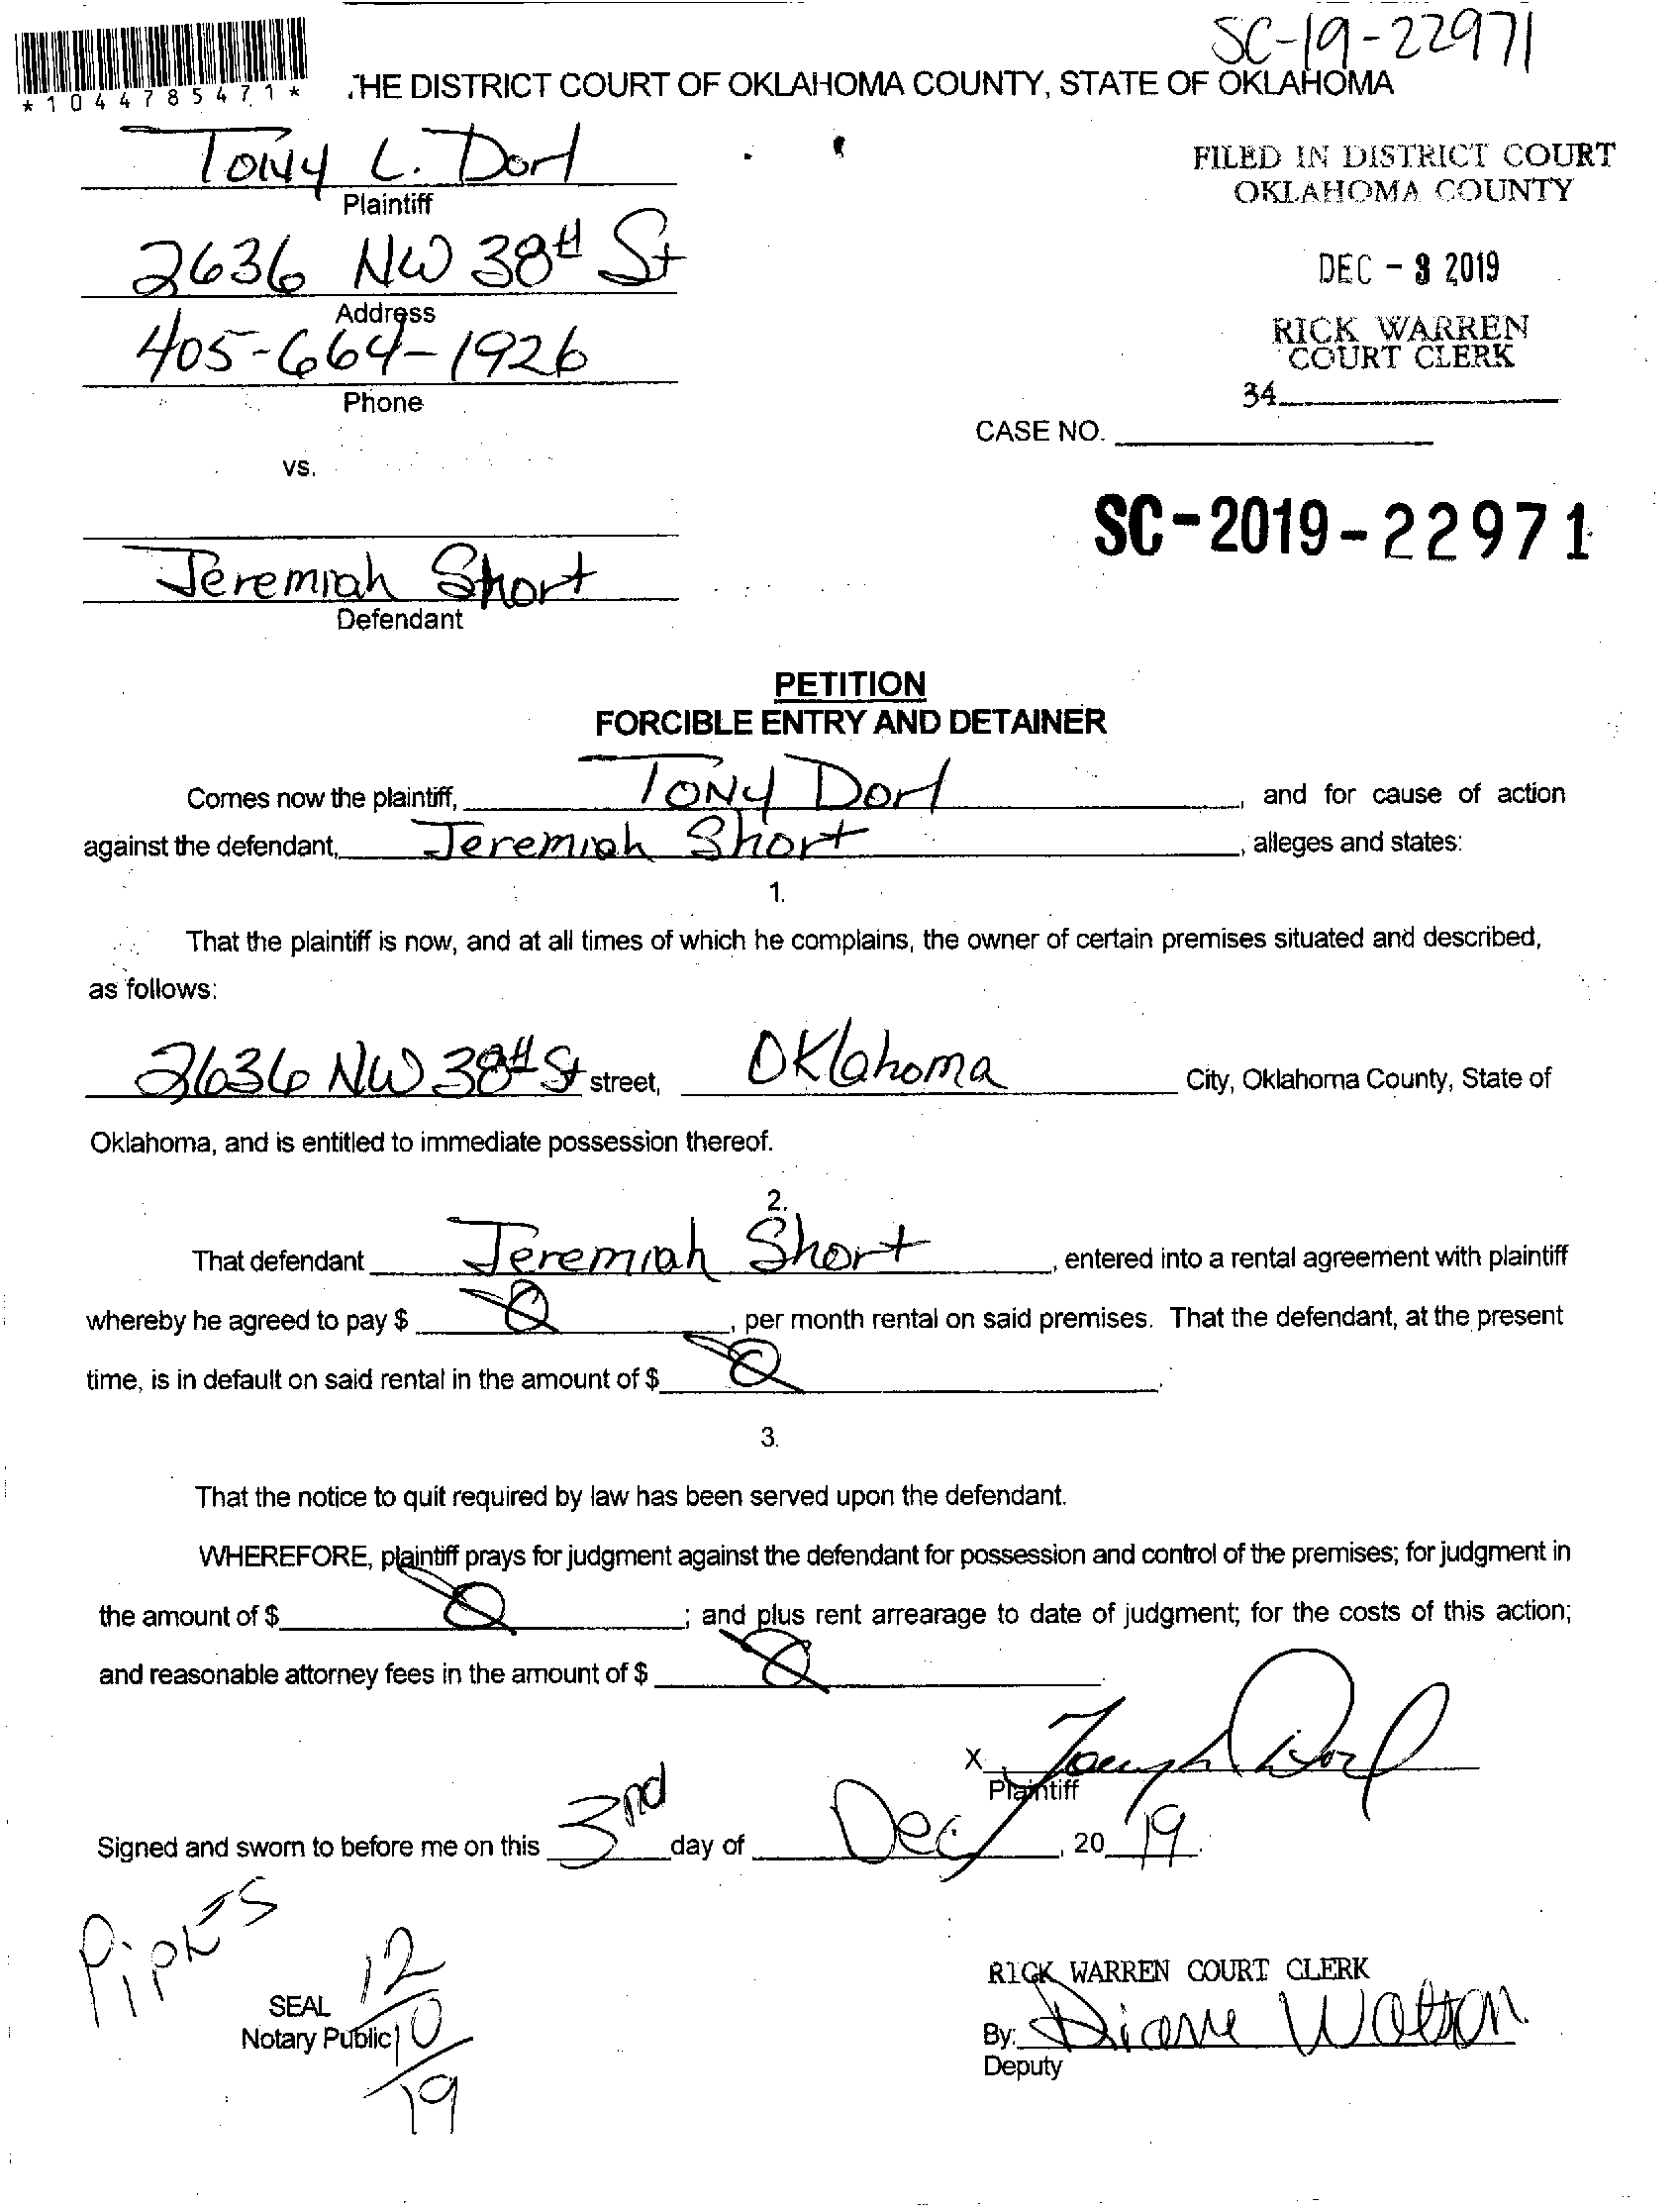 SC-19-22971
*1044785471*
THE DISTRICT COURT OF OKLAHOMA COUNTY, STATE OF OKLAHOMA
Tony L. Dorl
Plaintiff
FILED IN DISTRICT COURT
OKLAHOMA COUNTY
2636 NW 38th St
Address
DEC - 3 2019
405-664-1926
Phone
RICK WARREN
COURT CLERK
34
CASE NO.
vs.
SC-2019-22971
Jeremiah Short
Defendant
PETITION
FORCIBLE ENTRY AND DETAINER
Comes now the plaintiff, Tony Dorl, and for cause of action
against the defendant, Jeremiah Short, alleges and states:
1.
That the plaintiff is now, and at all times of which he complains, the owner of certain premises situated and described,
as follows:
2636 NW 38th St street, Oklahoma City, Oklahoma County, State of
Oklahoma, and is entitled to immediate possession thereof.
2.
That defendant Jeremiah Short, entered into a rental agreement with plaintiff
whereby he agreed to pay $ 0, per month rental on said premises. That the defendant, at the present
time, is in default on said rental in the amount of $ 0.
3.
That the notice to quit required by law has been served upon the defendant.
WHEREFORE, plaintiff prays for judgment against the defendant for possession and control of the premises; for judgment in
the amount of $ 0; and plus rent arrearage to date of judgment; for the costs of this action;
and reasonable attorney fees in the amount of $ 0.
X
Plaintiff
Signed and sworn to before me on this 3rd day of Dec, 2019.
12
10
19
SEAL
Notary Public
RICK WARREN COURT CLERK
By: Diane Watson
Deputy